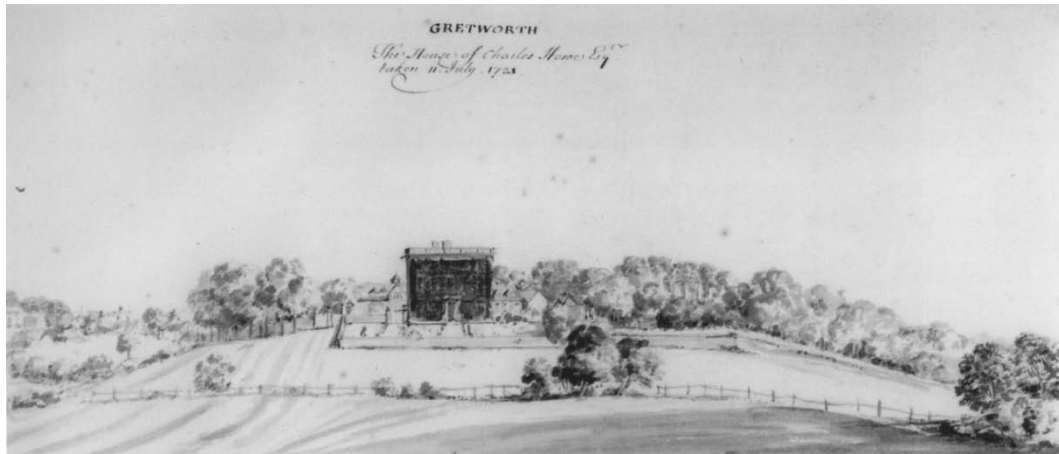 GRETWORTH
The House of Charles Howe Esqr.
taken 11. July. 1721